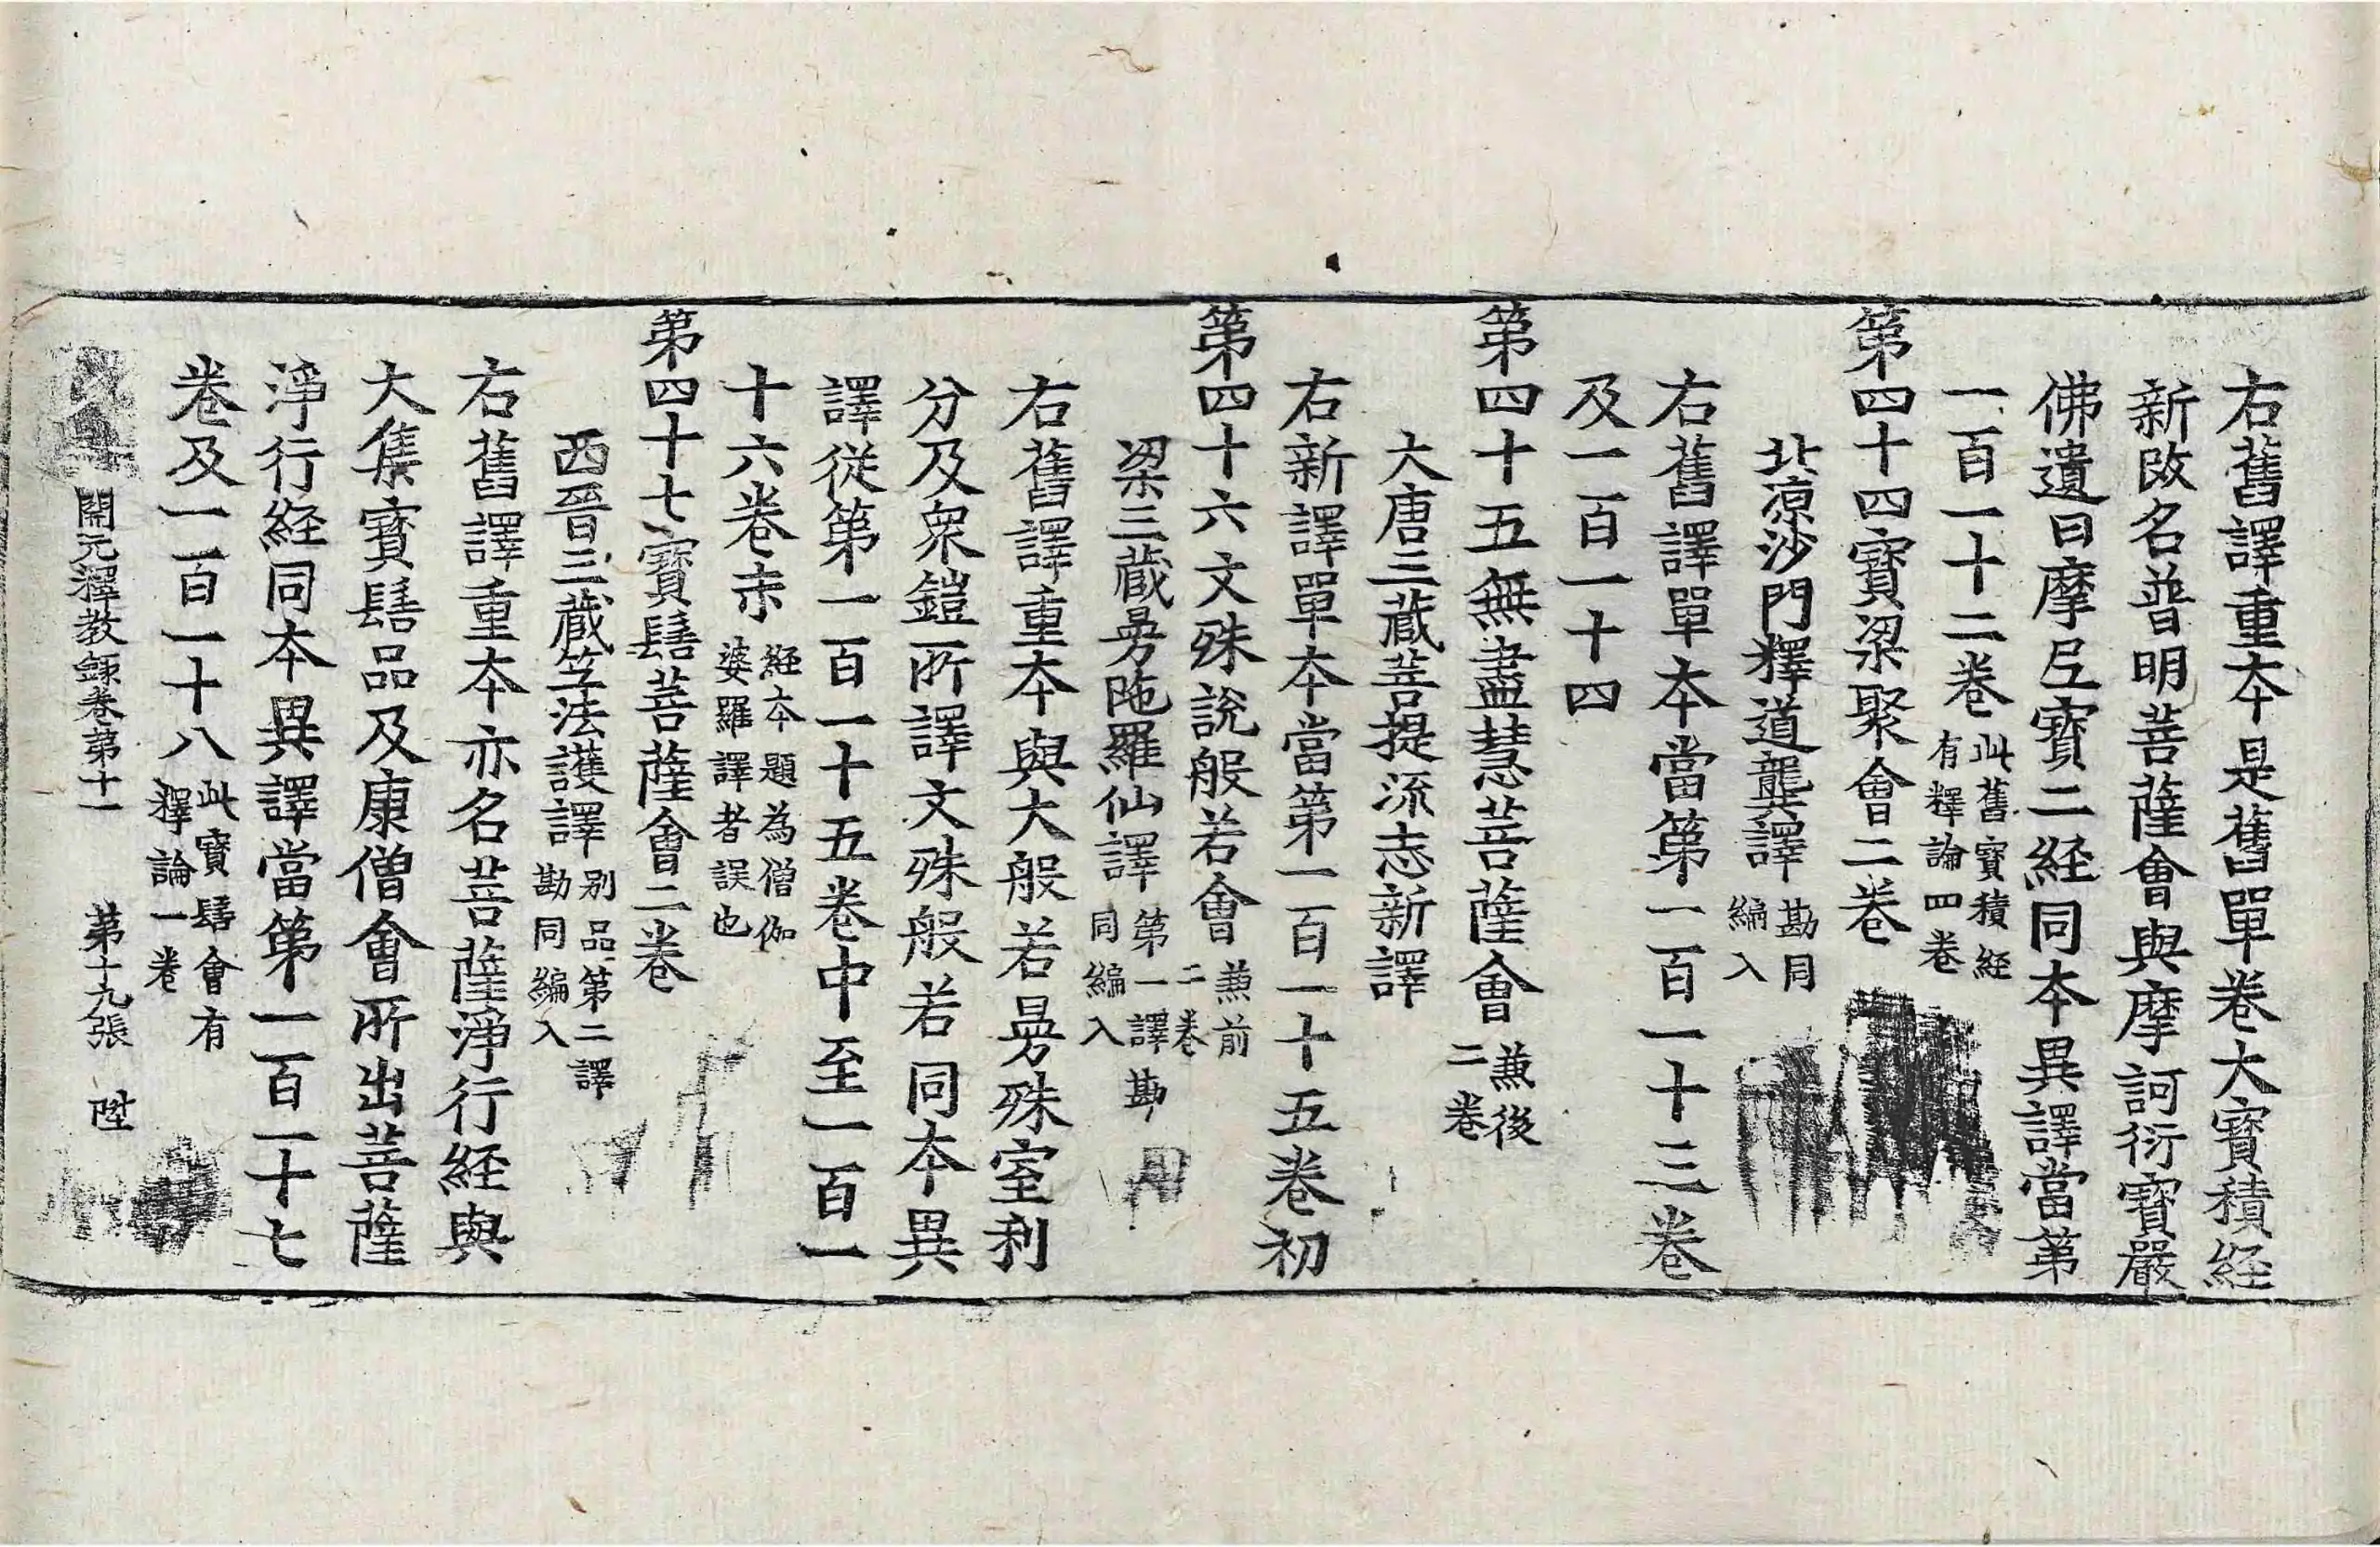 右舊譯重本是舊單卷大寶積經
新改名普明菩薩會與摩訶衍寶嚴
佛遺日摩尼寶二經同本異譯當第
一百一十二卷此舊寶積經有釋論四卷
第四十四寶梁聚會二卷
北涼沙門釋道龔譯勘同編入
右舊譯單本當第一百一十三卷
及一百一十四
第四十五無盡慧菩薩會兼後二卷
大唐三藏菩提流志新譯
右新譯單本當第一百一十五卷初
第四十六文殊說般若會兼前二卷
梁三藏曼陁羅仙譯第一譯勘同編入
右舊譯重本與大般若曼殊室利
分及衆鎧所譯文殊般若同本異
譯從第一百一十五卷中至一百一
十六卷末經本題為僧伽婆羅譯者誤也
第四十七寶髻菩薩會二卷
西晉三藏竺法護譯別品第二譯勘同編入
右舊譯重本亦名菩薩淨行經與
大集寶髻品及康僧會所出菩薩
淨行經同本異譯當第一百一十七
卷及一百一十八此寶髻會有釋論一卷
開元釋教錄卷第十一 第十九張